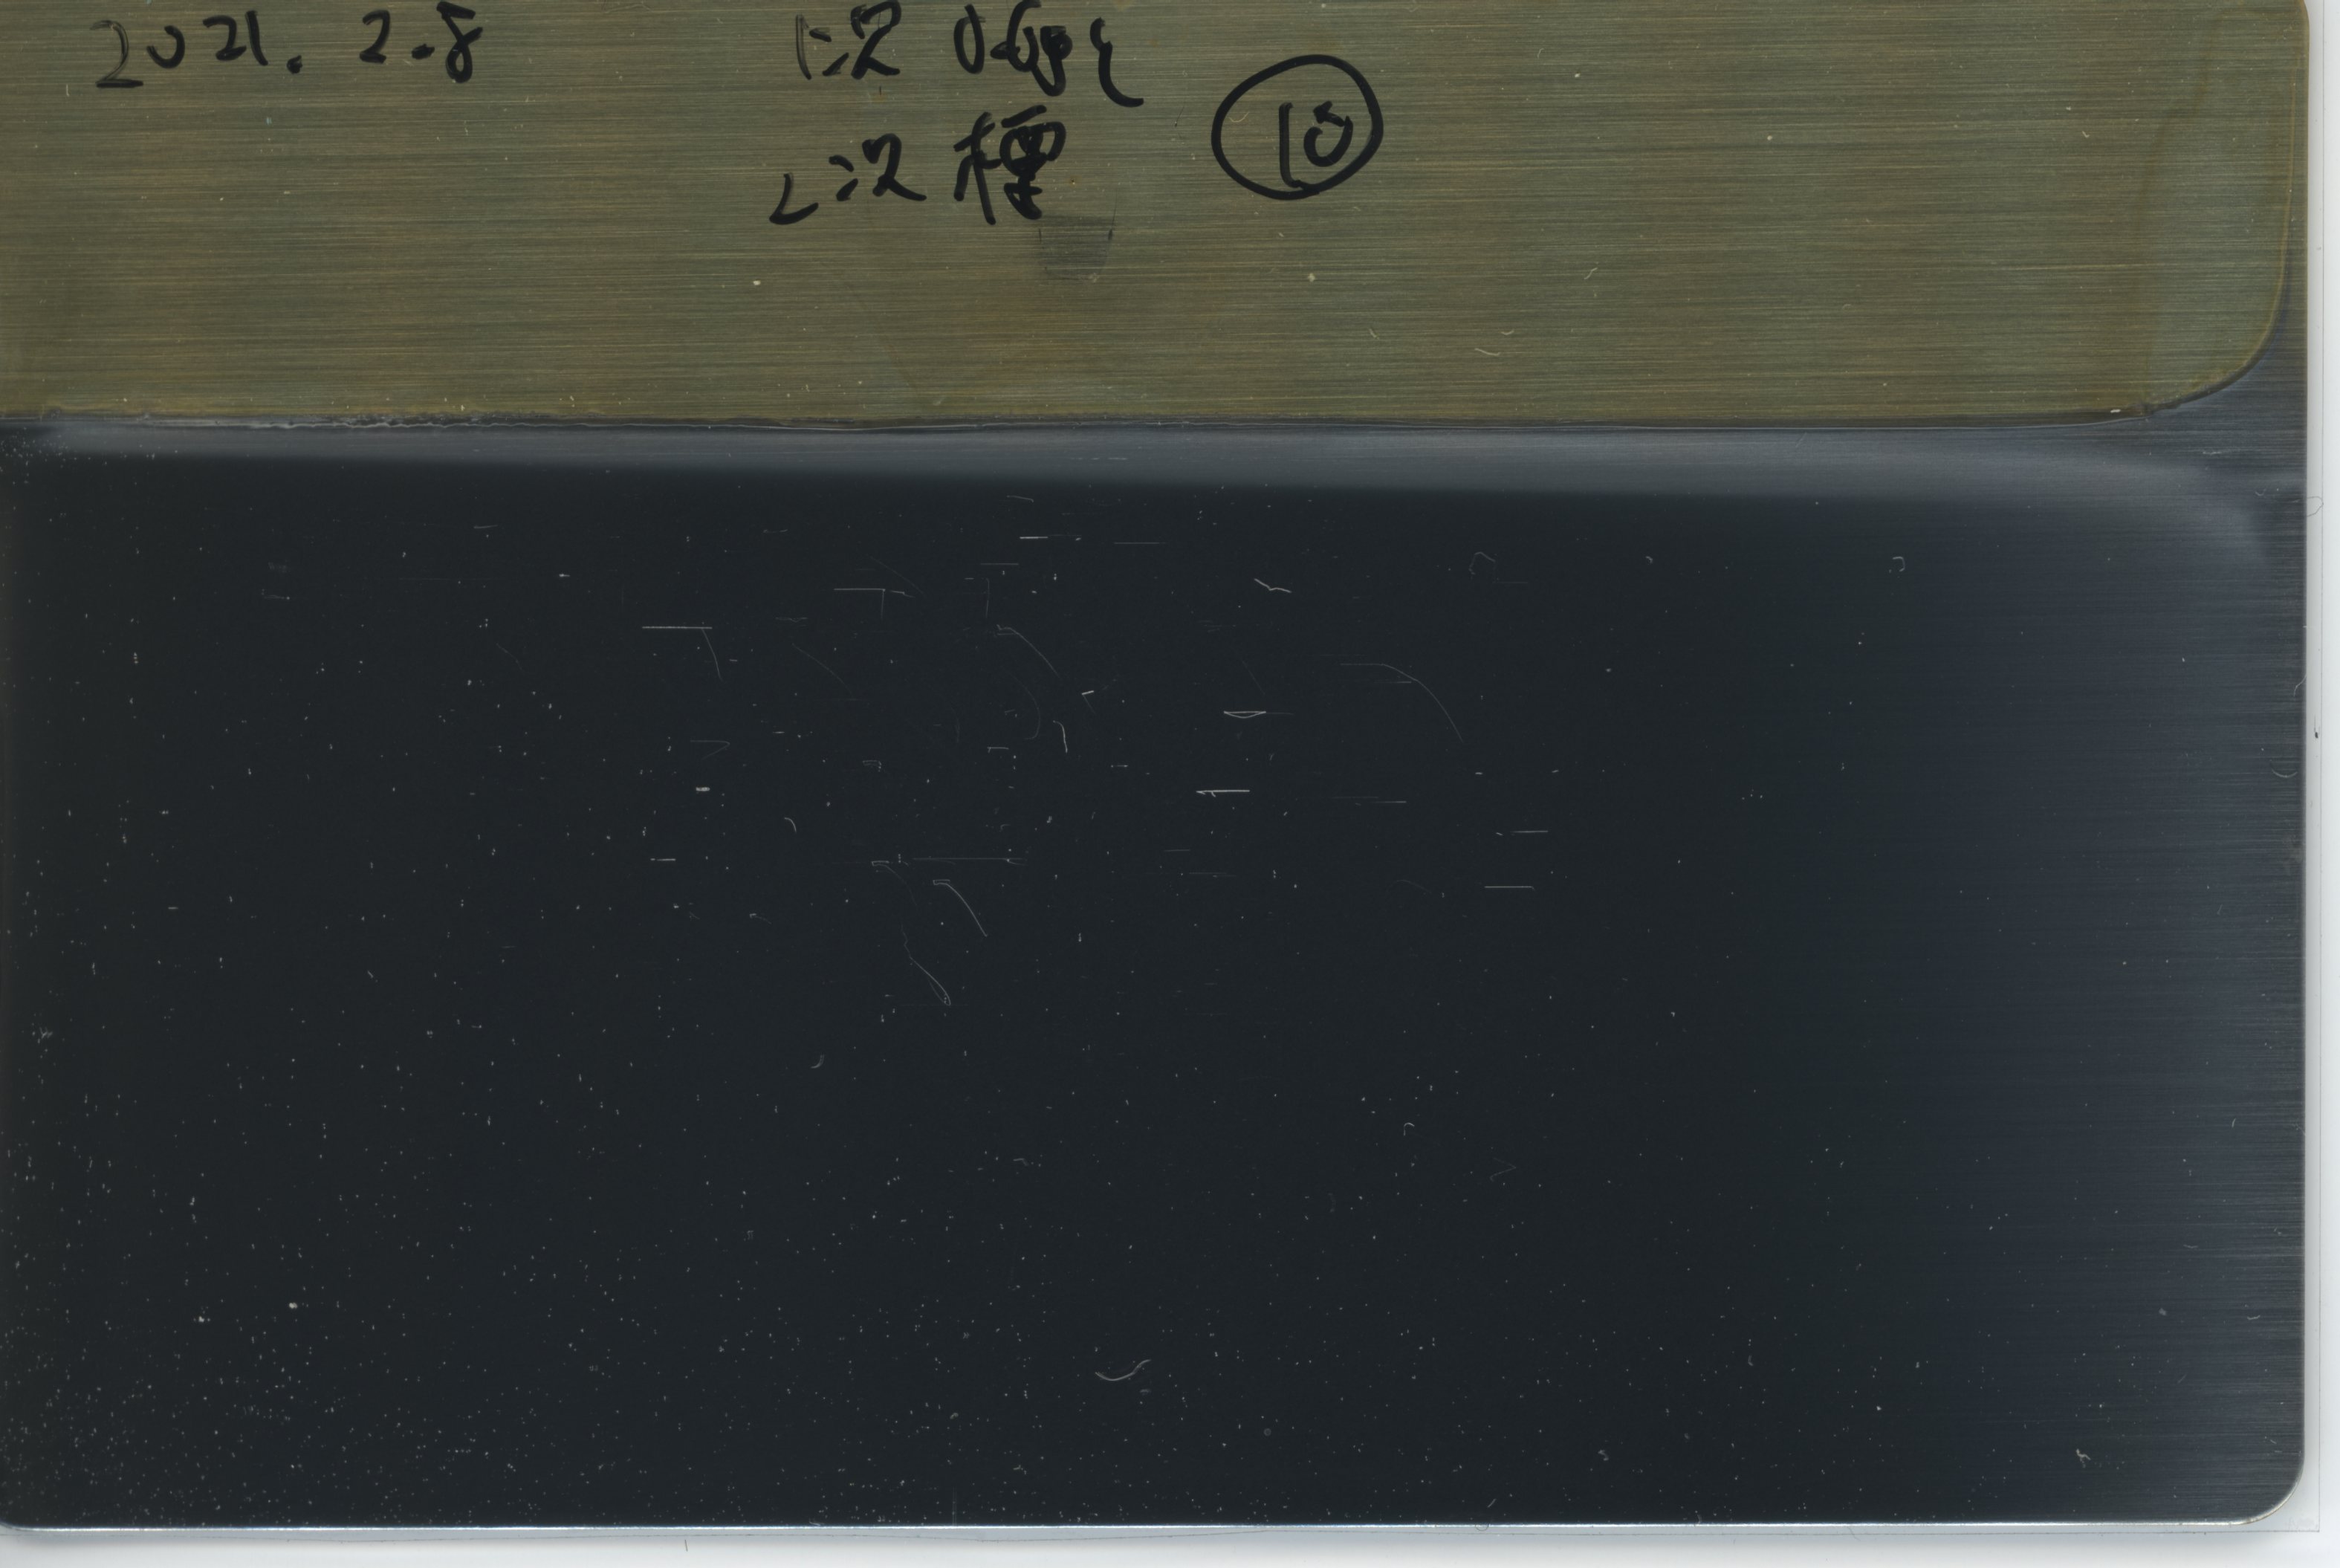 2021. 2.8
1次
2次 標
⑩